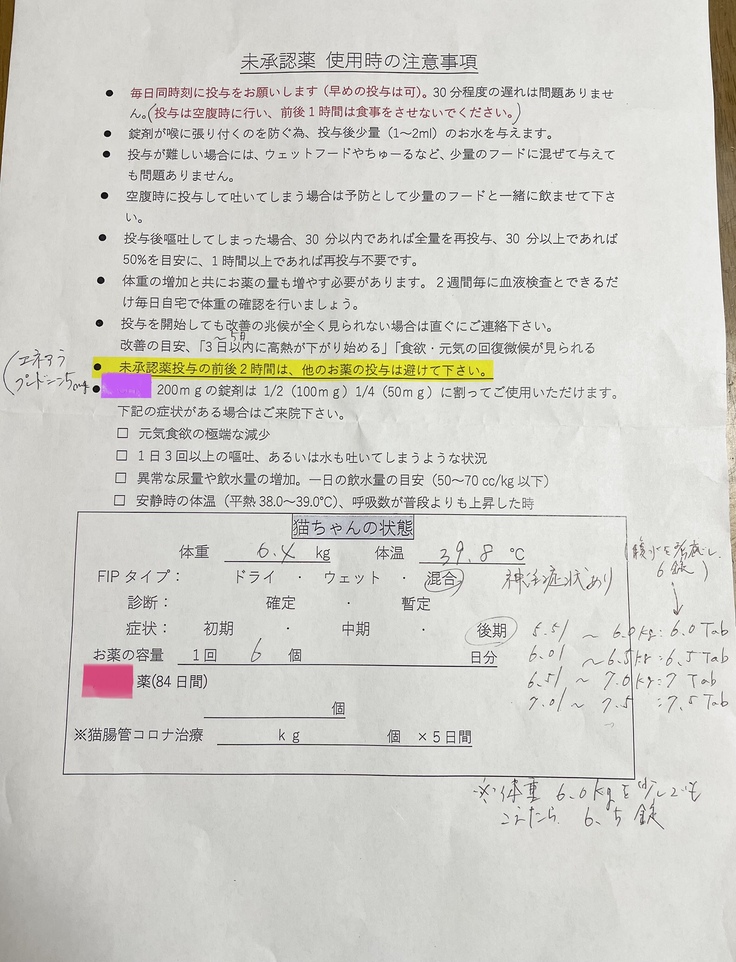 未承認薬 使用時の注意事項
● 毎日同時刻に投与をお願いします（早めの投与は可）。30分程度の遅れは問題ありませ
ん。（投与は空腹時に行い、前後１時間は食事をさせないでください。）
● 錠剤が喉に張り付くのを防ぐ為、投与後少量（1～2ml）のお水を与えます。
● 投与が難しい場合には、ウェットフードやちゅーるなど、少量のフードに混ぜて与えて
も問題ありません。
● 空腹時に投与して吐いてしまう場合は予防として少量のフードと一緒に飲ませて下さ
い。
● 投与後嘔吐してしまった場合、30 分以内であれば全量を再投与、30 分以上であれば
50%を目安に、１時間以上であれば再投与不要です。
● 体重の増加と共にお薬の量も増やす必要があります。２週間毎に血液検査とできるだ
け毎日自宅で体重の確認を行いましょう。
● 投与を開始しても改善の兆候が全く見られない場合は直ぐにご連絡下さい。
～5日
改善の目安、「３日以内に高熱が下がり始める」「食欲・元気の回復徴候が見られる
● 未承認薬投与の前後２時間は、他のお薬の投与は避けて下さい。
（エネアラ
プレドニン5mg
● 200ｍｇの錠剤は 1/2（100ｍｇ）1/4（50ｍｇ）に割ってご使用いただけます。
下記の症状がある場合はご来院下さい。
□ 元気食欲の極端な減少
□ １日３回以上の嘔吐、あるいは水も吐いてしまうような状況
□ 異常な尿量や飲水量の増加。一日の飲水量の目安（50～70 cc/kg 以下）
□ 安静時の体温（平熱 38.0～39.0℃）、呼吸数が普段よりも上昇した時
猫ちゃんの状態
体重 6.4 kg 体温 39.8 ℃
FIPタイプ： ドライ ・ ウェット ・ 混合 神経症状あり
診断： 確定 ・ 暫定
症状： 初期 ・ 中期 ・ 後期
お薬の容量 １回 6 個 日分
薬(84 日間)
個
※猫腸管コロナ治療 ｋｇ 個 ×５日間
（腹水を考慮し、
6錠）
5.51 ～ 6.0kg：6.0 Tab
6.01 ～6.5kg：6.5 Tab
6.51 ～ 7.0kg：7 Tab
7.01 ～ 7.5 ：7.5 Tab
※体重 6.0kgを少しでも
こえたら 6.5錠